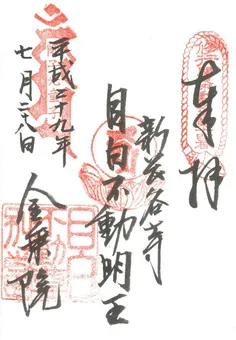 奉拝
新長谷寺
目白不動明王
金乗院
平成二十九年
七月二十八日